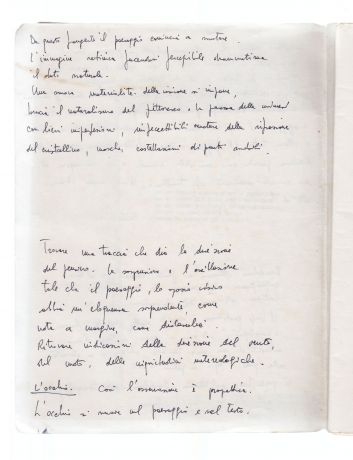 Da questo frangente il paesaggio comincia a mutare.
L'immagine retinica facendosi percepibile drammatizza
il dato naturale.
Una nuova materialità della visione si impone,
il naturalismo del pittoresco. la
con lievi imperfezioni, impercettibili mutare della rifrazione
del cristallino, mosche, costellazioni di punti
Trovare una traccia che dia le direzioni
del pensiero. La sospensione e l'oscillazione
tale che il paesaggio, lo spazio
abbia un'eloquenza sorprendente come
note a margine, come didascalie.
Ritrovare indicazioni della direzione del vento,
del moto, delle metereologiche.
L'occhio. Così l'osservazione è propettica.
L'occhio si muove sul paesaggio e sul testo.